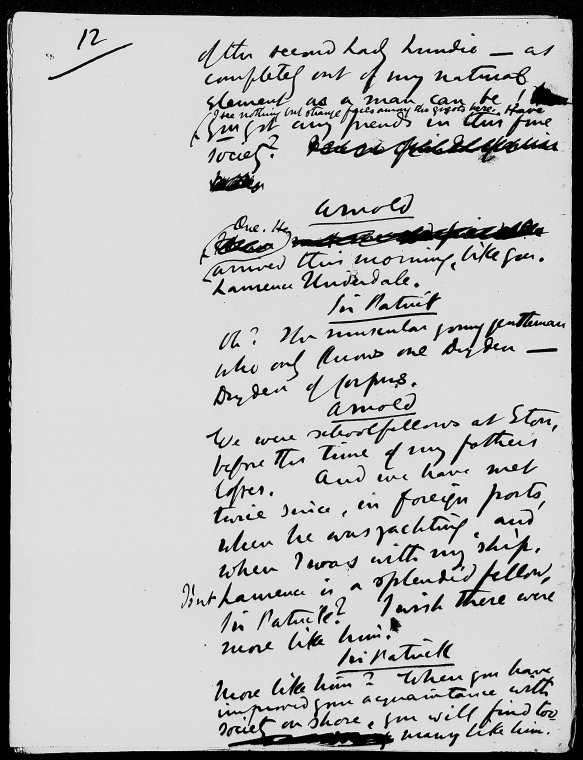 12
of the second Lady Lundie — as
completely out of my natural
element as a man can be!
I see nothing but strange faces among the guests here. Have
you got any friends in this fine
society?
Arnold
One. He
arrived this morning, like you.
Laurence Underdale.
Sir Patrick
Oh? The muscular young gentleman
who only knows one Dryden —
Dryden of Corpus.
Arnold
We were schoolfellows at Eton,
before the time of my father's
losses. And we have met
twice since, in foreign ports,
when he was yachting, and
when I was with my ship.
Isn't Laurence is a splendid fellow,
Sir Patrick? I wish there were
more like him!
Sir Patrick
More like him? When you have
improved your acquaintance with
society on shore, you will find too
many like him.